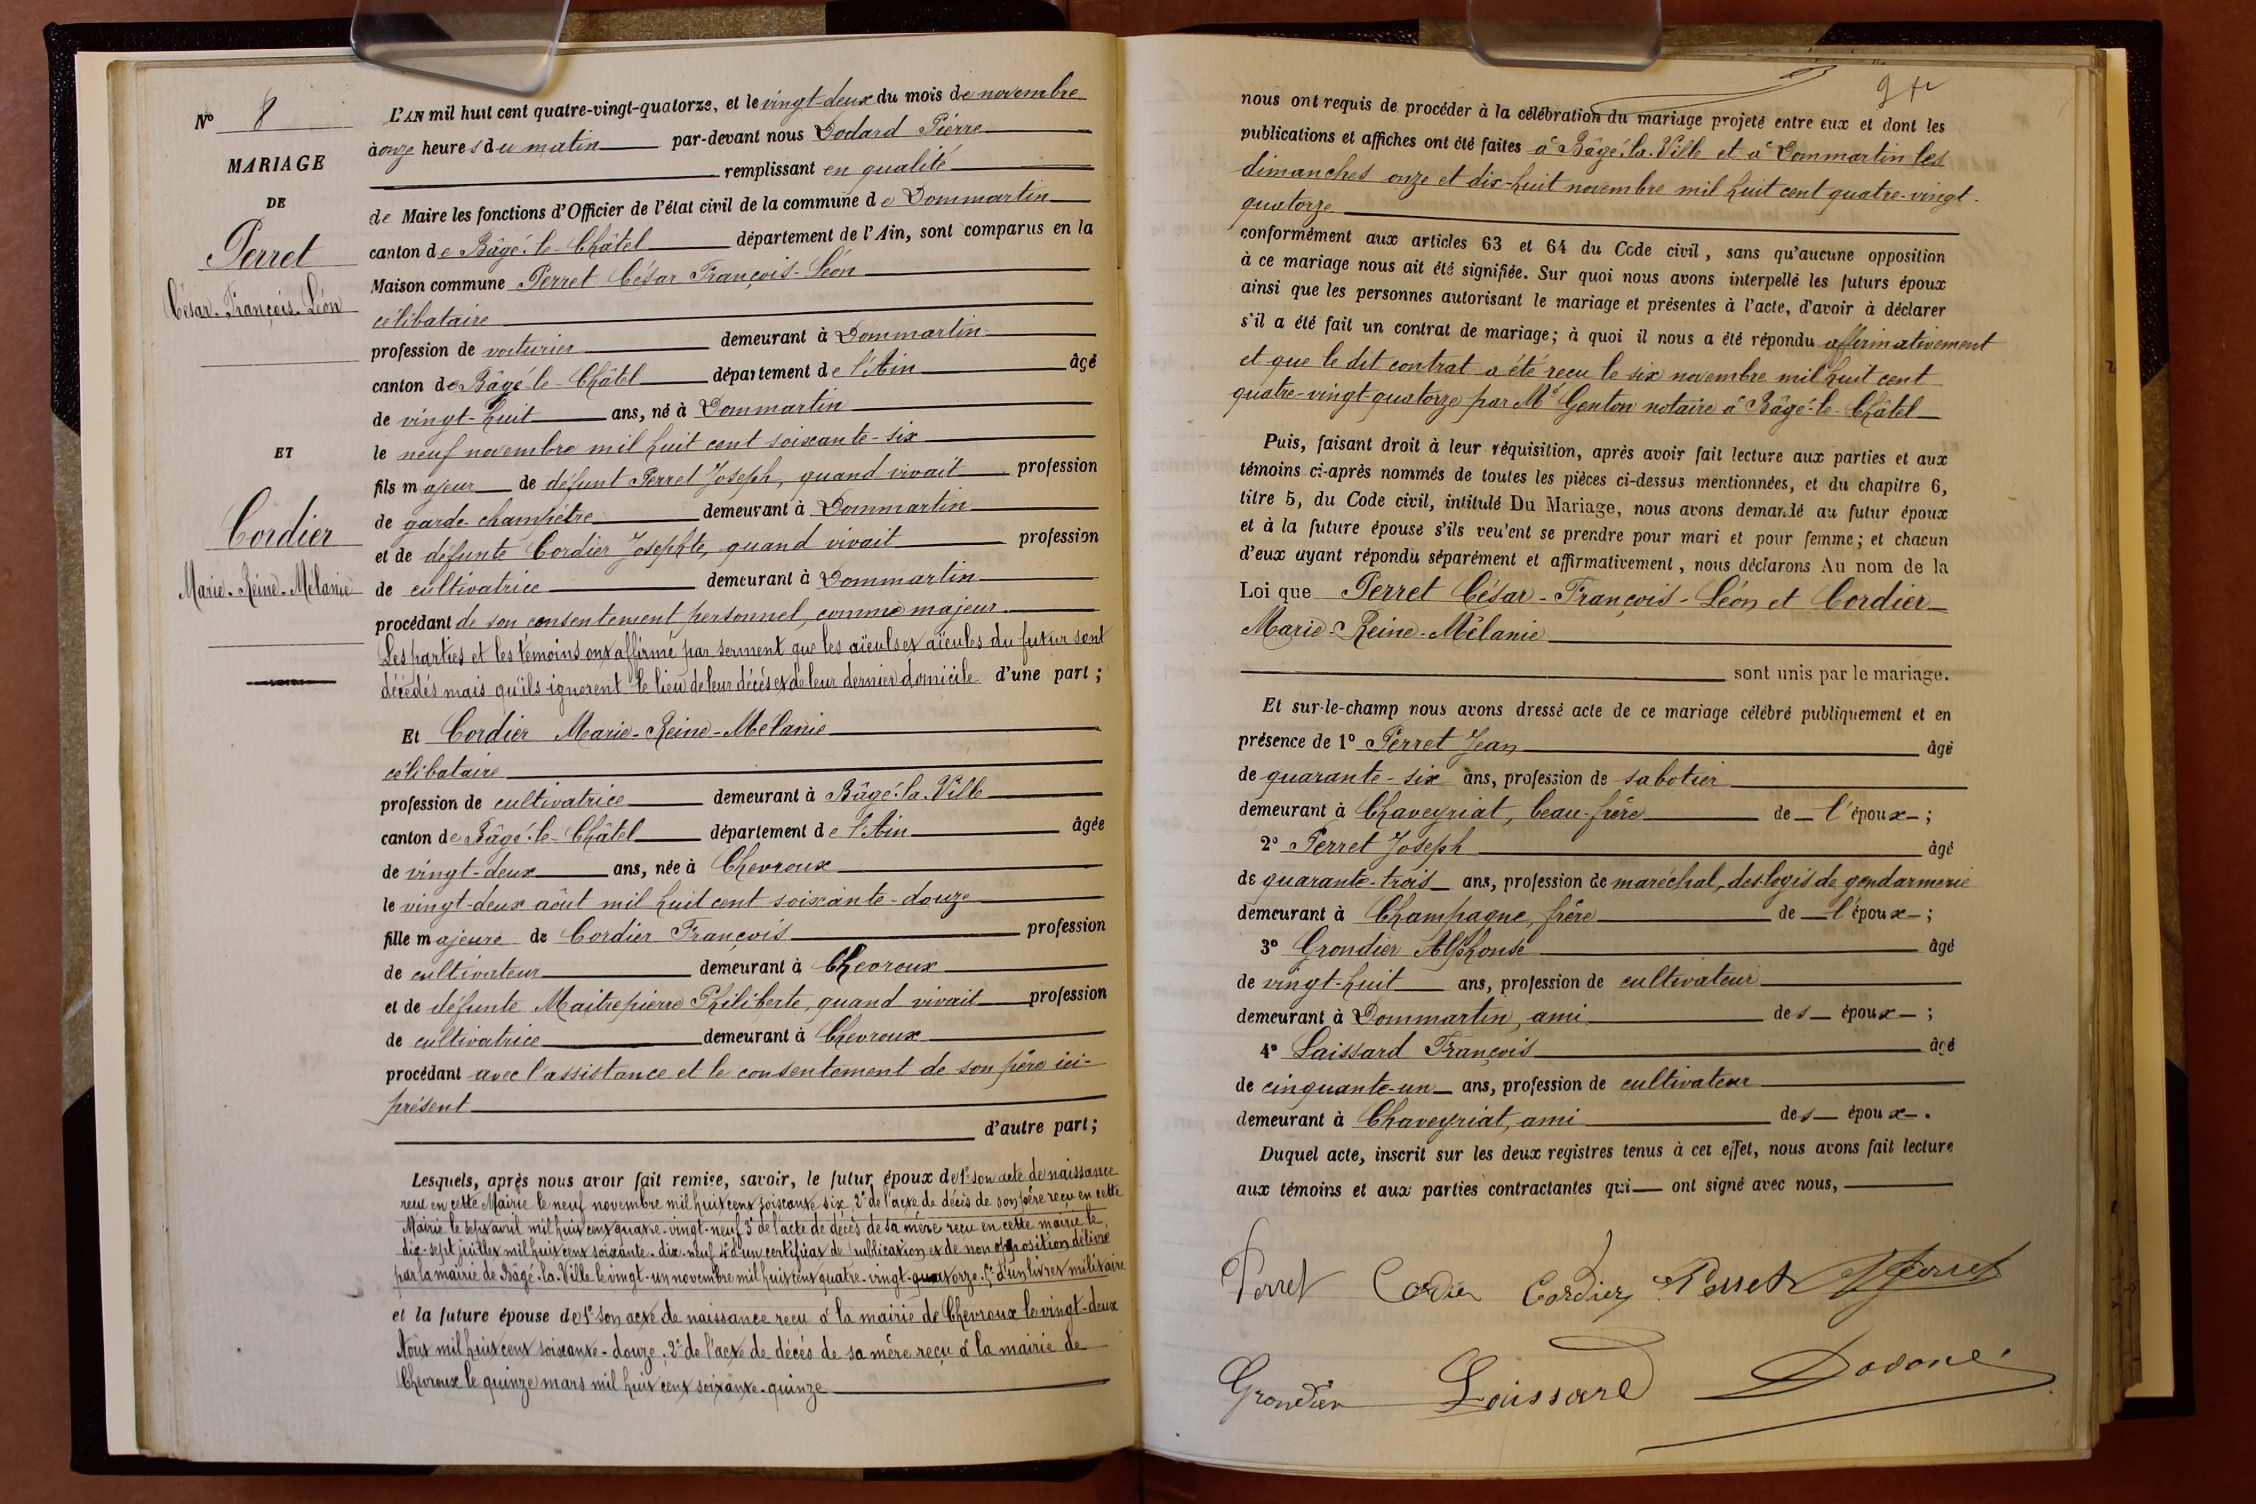 N° 8
MARIAGE
DE
Perret
César-François-Léon
ET
Cordier
Marie-Reine-Mélanie
L'AN mil huit cent quatre-vingt-quatorze, et le vingt-deux du mois de novembre
à onze heures du matin par-devant nous Dodard Pierre
remplissant en qualité
de Maire les fonctions d'Officier de l'état civil de la commune de Dommartin
canton de Bâgé-le-Châtel département de l'Ain, sont comparus en la
Maison commune Perret César François-Léon
célibataire
profession de voiturier demeurant à Dommartin
canton de Bâgé-le-Châtel département de l'Ain âgé
de vingt-huit ans, né à Dommartin
le neuf novembre mil huit cent soixante-six
fils majeur de défunt Perret Joseph, quand vivait profession
de garde-champêtre demeurant à Dommartin
et de défunte Cordier Josephte, quand vivait profession
de cultivatrice demeurant à Dommartin
procédant de son consentement personnel, comme majeur.
Les parties et les témoins ont affirmé par serment que les aïeuls et aïeules du futur sont
décédés mais qu'ils ignorent le lieu de leur décés et de leur dernier domicile d'une part;
Et Cordier Marie-Reine-Mélanie
célibataire
profession de cultivatrice demeurant à Bâgé-la-Ville
canton de Bâgé-le-Châtel département de l'Ain âgée
de vingt-deux ans, née à Chevroux
le vingt-deux août mil huit cent soixante-douze
fille majeure de Cordier François profession
de cultivateur demeurant à Chevroux
et de défunte Maitrepierre Philiberte, quand vivait profession
de cultivatrice demeurant à Chevroux
procédant avec l'assistance et le consentement de son père ici-
présent
d'autre part;
Lesquels, après nous avoir fait remise, savoir, le futur époux de 1° son acte de naissance
reçu en cette Mairie le neuf novembre mil huit cent soixante six, 2° de l'acte de décès de son père reçu en cette
Mairie le sept avril mil huit cent quatre-vingt-neuf 3° de l'acte de décès de sa mère reçu en cette mairie le
dix-sept juillet mil huit cent soixante-dix-neuf 4° d'un certificat de publication et de non opposition délivré
par la mairie de Bâgé-la-Ville le vingt-un novembre mil huit cent quatre-vingt-quatorze. 5° d'un livret militaire
et la future épouse de 1° son acte de naissance reçu à la mairie de Chevroux le vingt-deux
Août mil huit cent soixante-douze, 2° de l'acte de décés de sa mère reçu à la mairie de
Chevroux le quinze mars mil huit cent soixante-quinze
nous ont requis de procéder à la célébration du mariage projeté entre eux et dont les
publications et affiches ont été faites à Bâgé-la-Ville et à Dommartin les
dimanches onze et dix-huit novembre mil huit cent quatre-vingt-
quatorze
conformément aux articles 63 et 64 du Code civil, sans qu'aucune opposition
à ce mariage nous ait été signifiée. Sur quoi nous avons interpellé les futurs époux
ainsi que les personnes autorisant le mariage et présentes à l'acte, d'avoir à déclarer
s'il a été fait un contrat de mariage; à quoi il nous a été répondu affirmativement
et que le dit contrat a été reçu le six novembre mil huit cent
quatre-vingt-quatorze par Me Genton notaire à Bâgé-le-Châtel
Puis, faisant droit à leur réquisition, après avoir fait lecture aux parties et aux
témoins ci-après nommés de toutes les pièces ci-dessus mentionnées, et du chapitre 6,
titre 5, du Code civil, intitulé Du Mariage, nous avons demandé au futur époux
et à la future épouse s'ils veu'ent se prendre pour mari et pour femme; et chacun
d'eux ayant répondu séparément et affirmativement, nous déclarons Au nom de la
Loi que Perret César-François-Léon et Cordier
Marie-Reine-Mélanie
sont unis par le mariage.
Et sur-le-champ nous avons dressé acte de ce mariage célébré publiquement et en
présence de 1° Perret Jean âgé
de quarante-six ans, profession de sabotier
demeurant à Chaveyriat, beau-frère de l'époux;
2° Perret Joseph âgé
de quarante-trois ans, profession de maréchal-des-logis de gendarmerie
demeurant à Champagne, frère de l'époux;
3° Grondier Alphonse âgé
de vingt-huit ans, profession de cultivateur
demeurant à Dommartin, ami des époux;
4° Laissard François âgé
de cinquante-un ans, profession de cultivateur
demeurant à Chaveyriat, ami des époux.
Duquel acte, inscrit sur les deux registres tenus à cet effet, nous avons fait lecture
aux témoins et aux parties contractantes qui ont signé avec nous,
Perret Cordier Cordier Perret Perret
Grondier Laissard Dodard